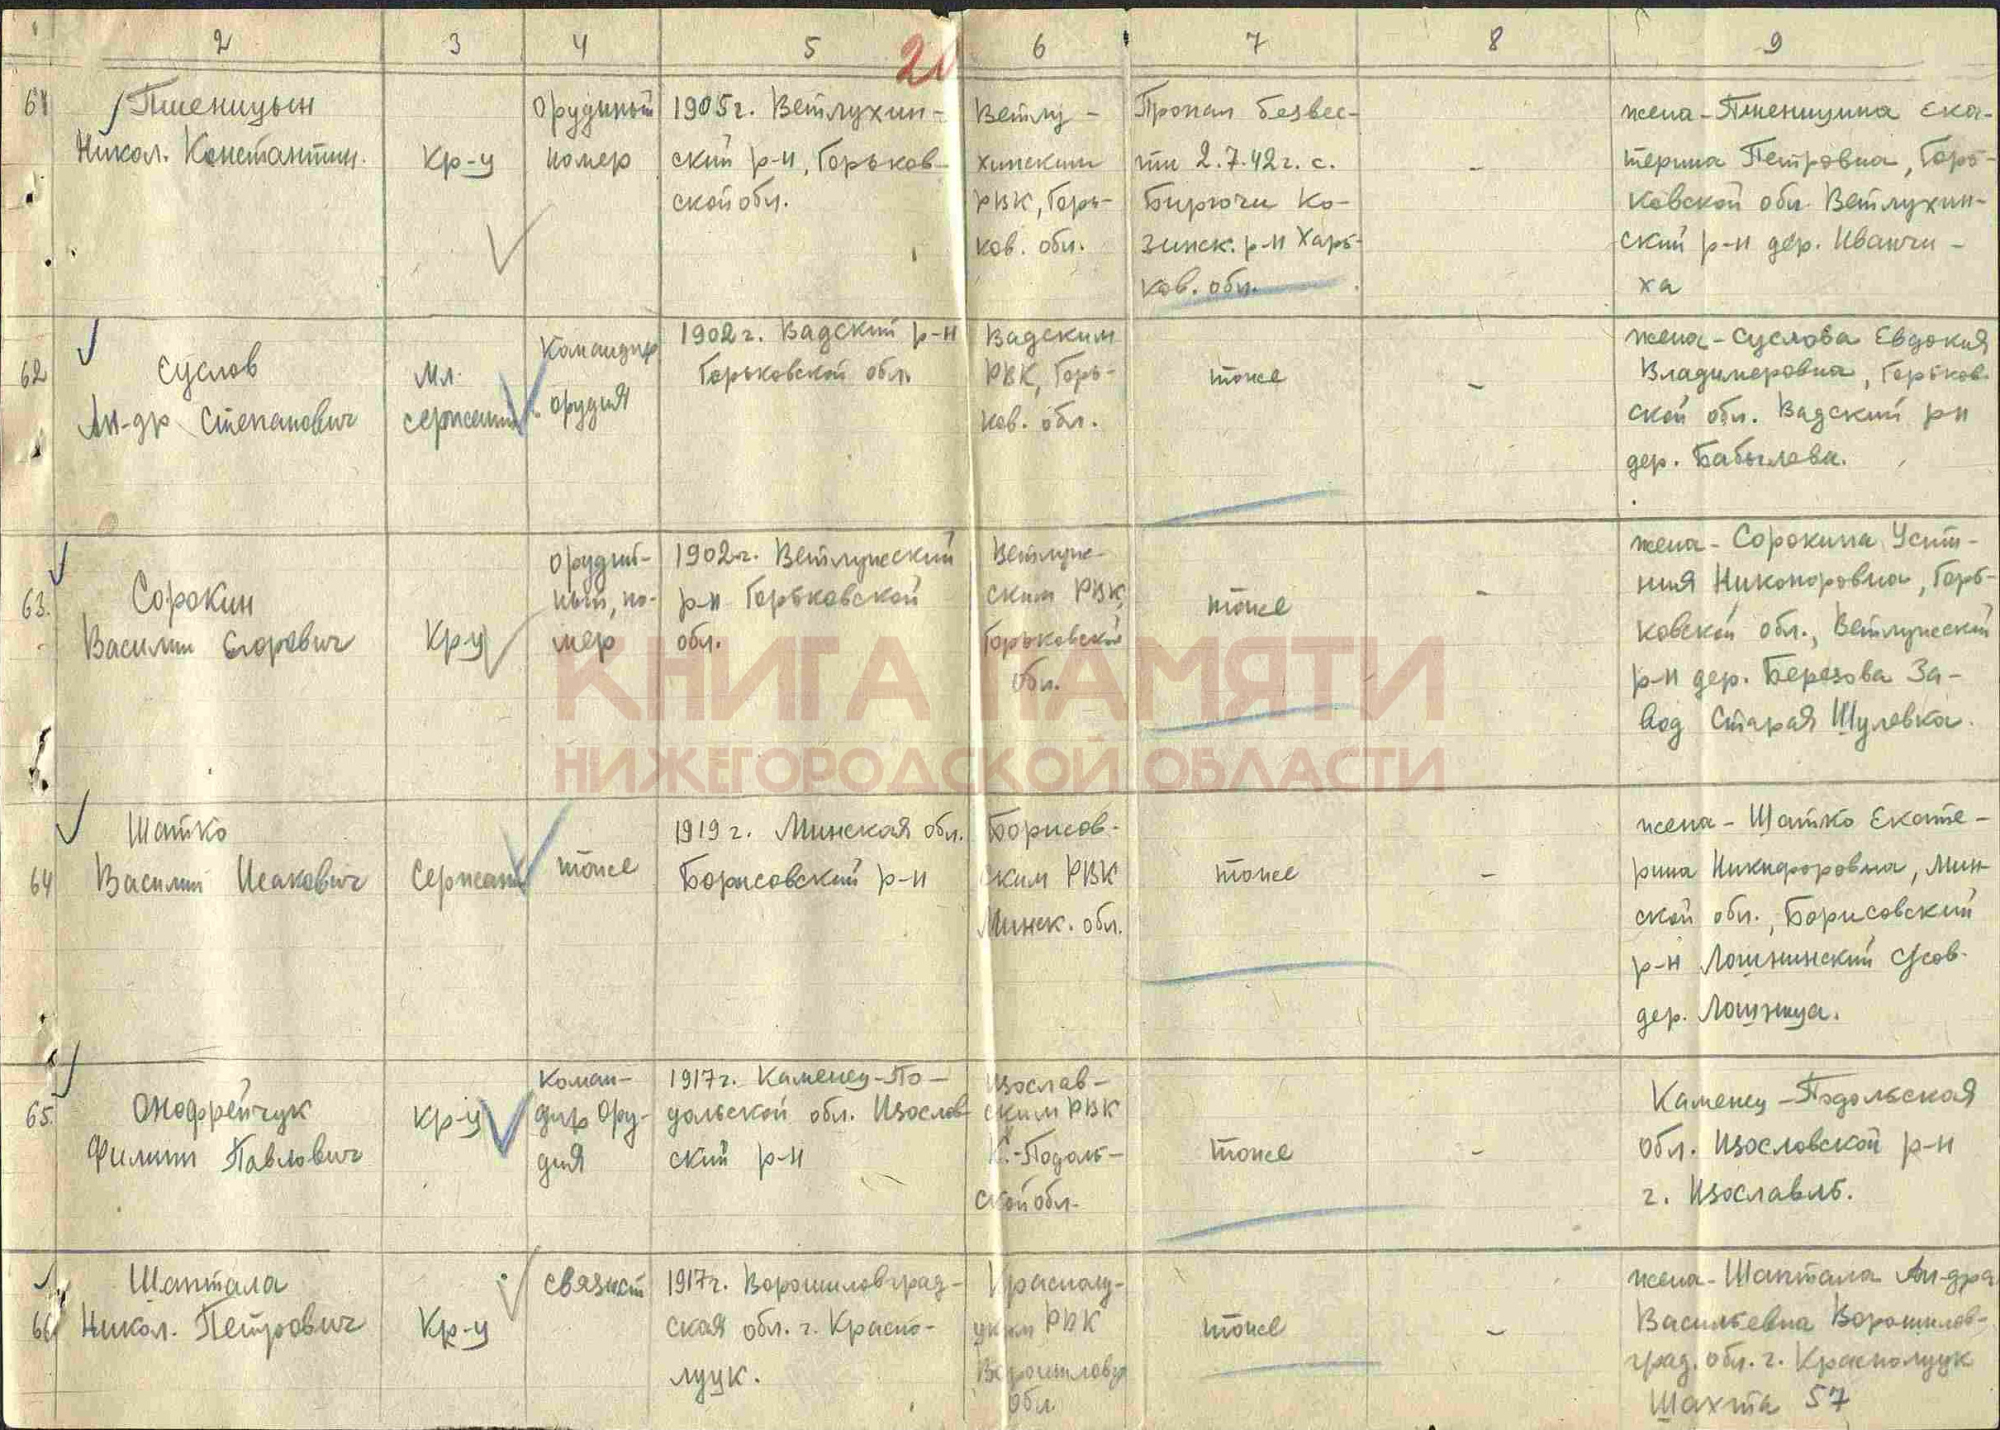 2 3 4 5 6 7 8 9
61
Пшеницын
Никол. Константин.
Кр-ц
Орудиный
номер
1905г. Ветлухин-
ский р-н, Горьков-
ской обл.
Ветлу-
хинским
РВК, Горь-
ков. обл.
Пропал безвес-
ти 2.7.42г. с.
Бирючи Ко-
зинск. р-н Харь-
ков. обл.
-
жена-Пшеницина Ека-
терина Петровна, Горь-
ковской обл. Ветлухин-
ский р-н дер. Иванчи-
ха
62
Суслов
Ал-др Степанович
Мл.
сержант
Командир
орудия
1902г. Вадский р-н
Горьковской обл.
Вадским
РВК, Горь-
ков. обл.
тоже
-
жена-Суслова Евдокия
Владимеровна, Горьков.
ской обл. Вадский р-н
дер. Бабылева.
63.
Сорокин
Василий Егоревич
Кр-ц
Орудий-
ный, но-
мер
1902г. Ветлужский
р-н Горьковской
обл.
Ветлуж-
ским РВК,
Горьковской
обл.
тоже
-
жена-Сорокина Усти-
ния Никоноровна, Горь-
ковской обл., Ветлужский
р-н дер. Березова За-
вод Старая Шулевка.
64
Шатко
Василий Исакович
Сержант
тоже
1919г. Минская обл.
Борисовский р-н
Борисов-
ским РВК
Минск. обл.
тоже
-
жена-Шатко Екате-
рина Никифоровна, Мин-
ской обл., Борисовский
р-н Лошнинский с/сов.
дер. Лошница.
65.
Онофрейчук
Филипп Павлович
Кр-ц
Коман-
дир Ору-
дия
1917г. Каменец-По-
дольской обл. Изослов-
ский р-н
Изослав-
ским РВК
К.-Подоль-
ской обл.
тоже
-
Каменец-Подольская
обл. Изословской р-н
г. Изославль.
66
Шаптала
Никол. Петрович
Кр-ц
связист
1917г. Ворошиловград-
ская обл. г. Красно-
луцк.
Краснолу-
цким РВК
Ворошиловгр
обл.
тоже
-
жена-Шаптала Ал-дра
Васильевна Ворошилов-
град. обл. г. Краснолуцк
Шахта 57
КНИГА ПАМЯТИ
НИЖЕГОРОДСКОЙ ОБЛАСТИ